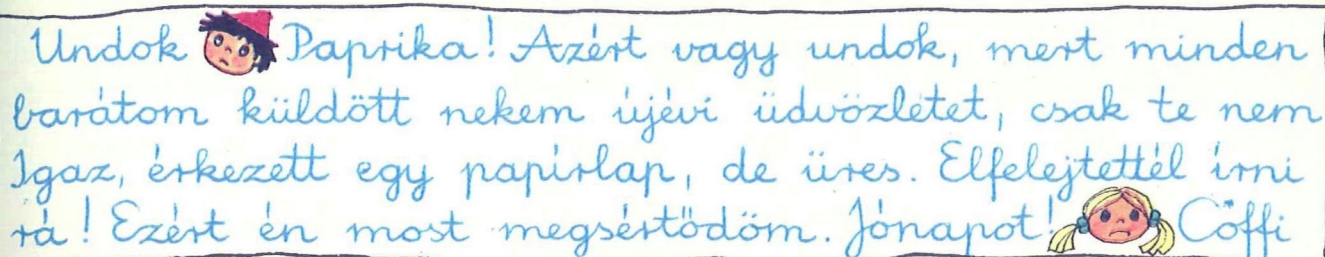 Undok Paprika! Azért vagy undok, mert minden
barátom küldött nekem újévi üdvözletet, csak te nem
Igaz, érkezett egy papírlap, de üres. Elfelejtettél írni
rá! Ezért én most megsértődöm. Jónapot! Cöffi